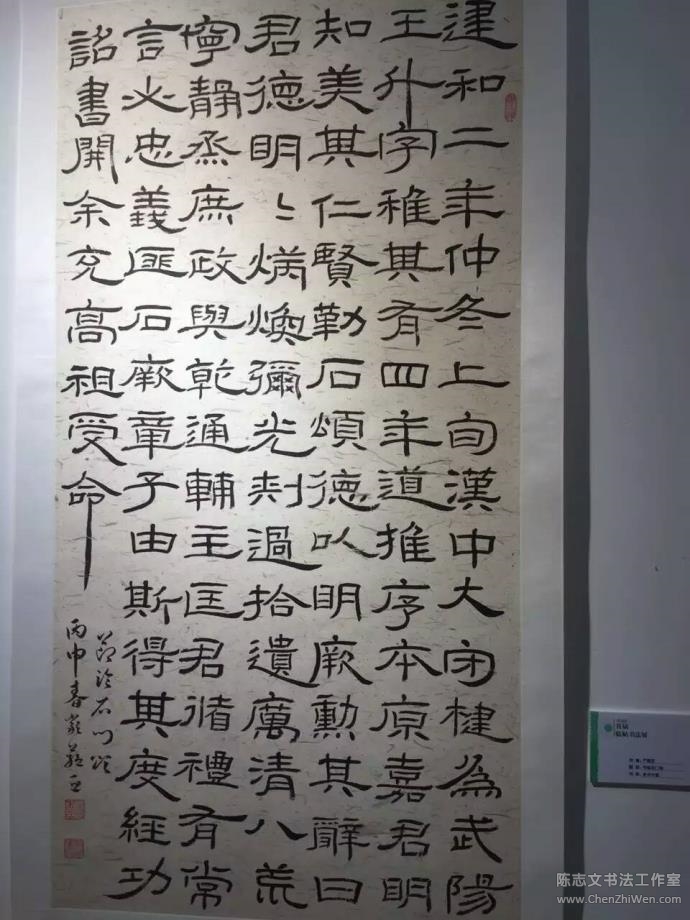 建和二年仲冬上旬漢中大守楗為武陽
王升字稚其有四年道推序本原嘉君明
知美其仁賢勒石頌德以明厥勳其辭曰
君德明〻炳煥彌光刺過拾遺厲清八荒
寧靜烝庶政與乾通輔主匡君循禮有常
言必忠義匪石厥章子由斯得其度經功
詔書開余充高祖受命
節臨石門頌
丙申春嚴
首届
临帖书法展
陈志文书法工作室
www.ChenZhiWen.com